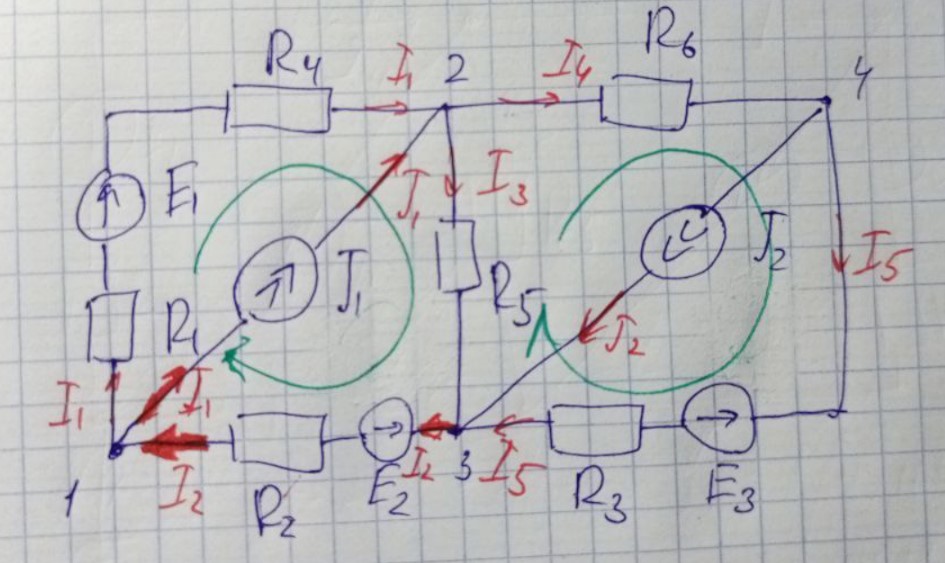 R4 I1 2 I4 R6 4
E1 J1 I3
J1 R5 J2 I5
R1 J2
I1 J1
I2 R2 E2 I2 3 I5 R3 E3
1